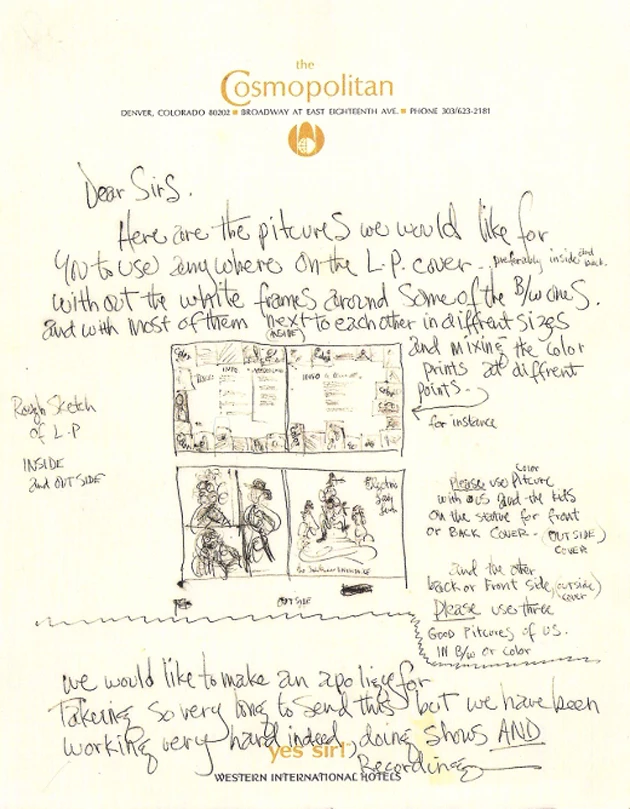 the
Cosmopolitan
DENVER, COLORADO 80202 ■ BROADWAY AT EAST EIGHTEENTH AVE. ■ PHONE 303/623-2181
Dear Sirs.
Here are the pitcures we would like for
You to use anywhere on the L.P. cover.. preferably inside and back.
without the white frames around some of the B/w ones.
and with most of them next to each other in diffrent sizes
(INSIDE)
and mixing the color
prints at diffrent
points.
for instance
Rough Sketch
of L.P
INSIDE
and OUTSIDE
INFO
INFO
Electric
Lady
Land
OUTSIDE
Please use color Pitcure
with us and the kids
on the statue for front
or BACK COVER - (OUTSIDE)
COVER
and the other
back or Front side, (outside)
cover
Please use three
GOOD Pitcures of US.
IN B/W or color
we would like to make an apoligie for
Takeing so very long to send this but we have been
working very hard indeed, doing shows AND
Recording
yes sir!
WESTERN INTERNATIONAL HOTELS